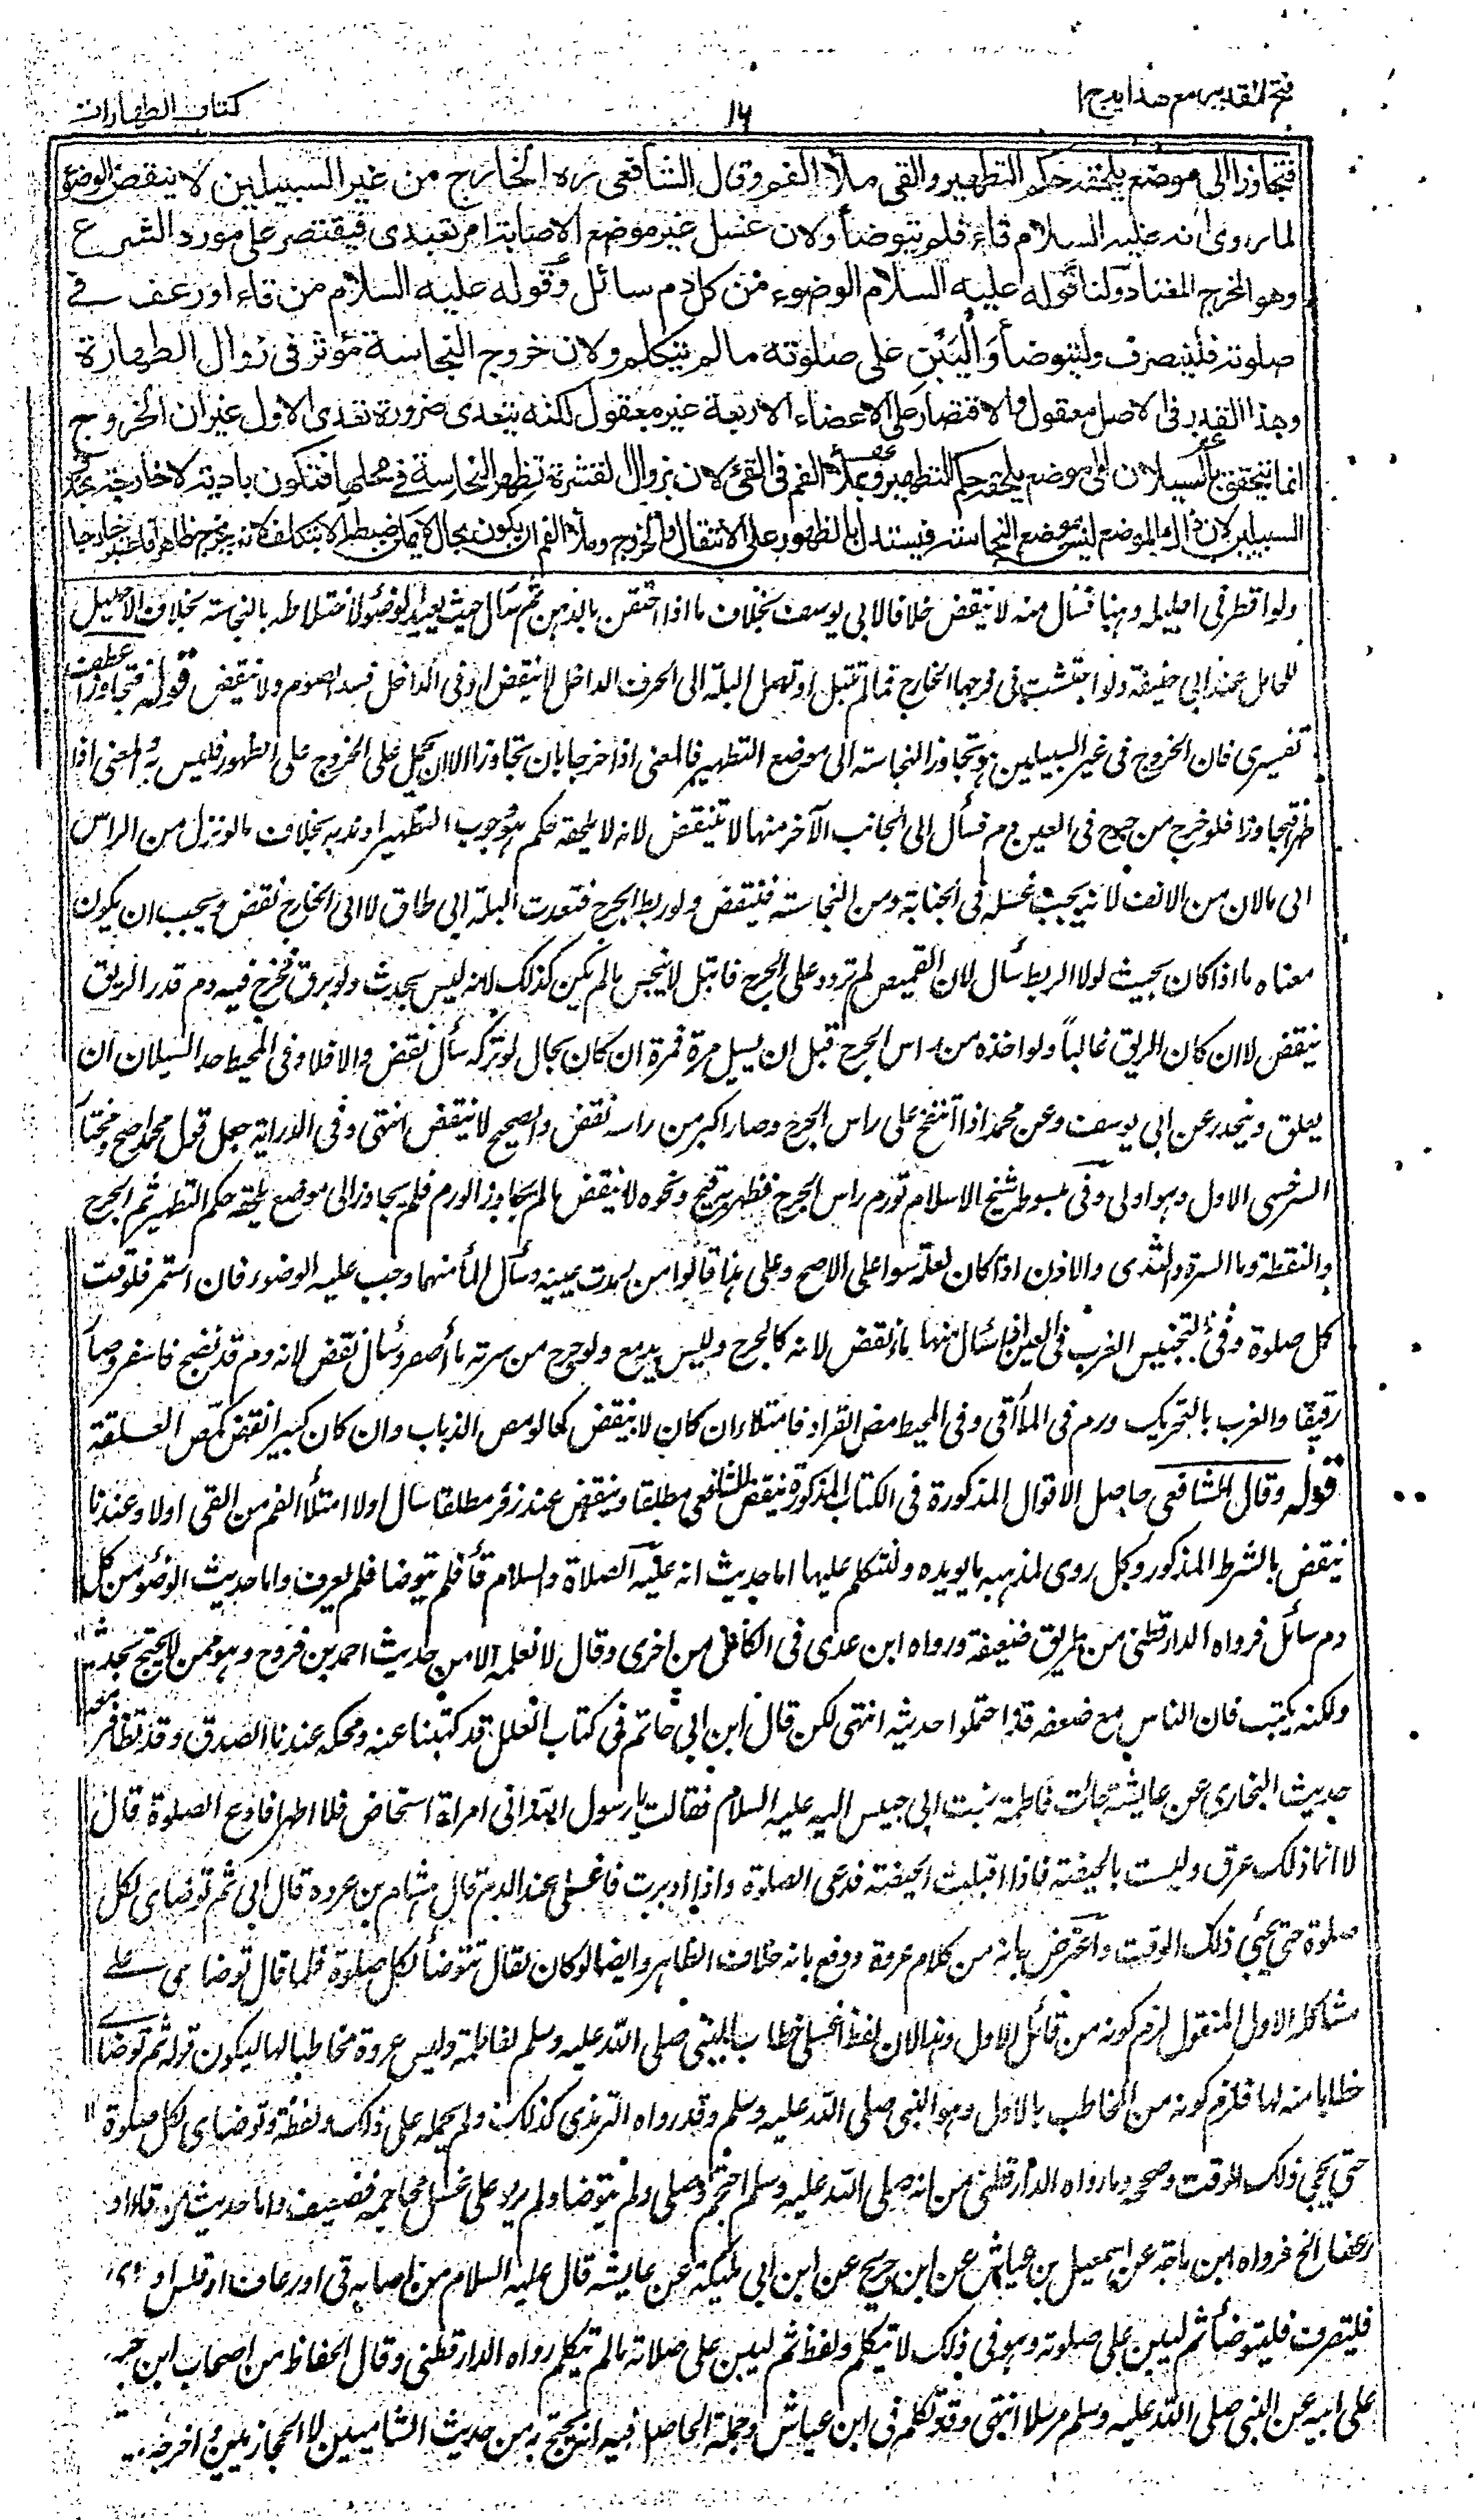 فتح القدير مع هدايه ج ١
١٦
كتاب الطهارات
فتجاوزا الى موضع يلحقه حكم التطهير والقئ ملأ الفم وقال الشافعي ره الخارج من غير السبيلين لا ينقض الوضوء
لما روى انه عليه السلام قاء فلم يتوضأ ولان غسل غير موضع الاصابة امر تعبدى فيقتصر على مورد الشرع
وهو المخرج المعتاد ولنا قوله عليه السلام الوضوء من كل دم سائل وقوله عليه السلام من قاء او رعف في
صلوته فلينصرف وليتوضأ وليبن على صلوته ما لم يتكلم ولان خروج النجاسة مؤثر فى زوال الطهارة
وهذا القدر فى الاصل معقول والاقتصار على الاعضاء الاربعة غير معقول لكنه يتعدى ضرورة تعدى الاول غير ان الخروج
انما يتحقق بالسيلان الى موضع يلحقه حكم التطهير وبملأ الفم فى القئ لان بزوال القشرة تظهر النجاسة في محلها فتكون بادية لا خارجة بخلاف
السبيلين لان ذاك الموضع ليس بموضع النجاسة فيستدل بالظهور على الانتقال والخروج وملأ الفم ان يكون بحال لا يمكن ضبطه الا بتكلف لانه يخرج ظاهرا فاعتبر خارجا
ولو اقطر فى احليله دهنا فسال منه لا ينقض خلافا لابى يوسف بخلاف ما اذا احتقن بالدهن ثم سال حيث يعيد الوضوء لاختلاطه بالنجاسة بخلاف الاحليل
للحائل عند ابى حنيفة ولو احتشت فى فرجها الخارج فما لم تبتل او تصل البلة الى الحرف الداخل لا ينقض او فى الداخل فسد الصوم ولا ينقض قوله فتجاوزا عطف
تفسيرى فان الخروج فى غير السبيلين هو تجاوز النجاسة الى موضع التطهير فالمعنى اذا خرجا بان تجاوزا الا ان يحمل على الخروج على الظهور فليس به المعنى اذا
ظهر فتجاوزا فلو خرج من جرح فى العين دم فسال الى الجانب الآخر منها لا تنقض لانه لا يلحقه حكم هو وجوب التطهير او ندبه بخلاف ما لو نزل من الراس
الى ما لان من الانف لانه يجب غسله فى الجنابة ومن النجاسة فينتقض ولو ربط الجرح فنفذت البلة الى طاق لا الى الخارج نقض ويجب ان يكون
معناه ما اذا كان بحيث لولا الربط سال لان القميص لو تردد على الجرح فابتل لا ينجس ما لم يكن كذلك لانه ليس بحدث ولو بزق فخرج فيه دم قدر الريق
ينقض لا ان كان الريق غالبا ولو اخذه من راس الجرح قبل ان يسيل مرة فمرة ان كان بحال لو تركه سال نقض والا فلا وفى المحيط حد السيلان ان
يعلو وينحدر عن ابى يوسف وعن محمد اذا انتفخ على راس الجرح وصار اكبر من راسه نقض والصحيح لا ينقض انتهى وفى الدراية جعل قول محمد اصح ومختار
السرخسى الاول وهو اولى وفى مبسوط شيخ الاسلام تورم راس الجرح فظهر به قيح ونحوه لا ينقض ما لم يجاوز الورم فلم يجاوز الى موضع يلحقه حكم التطهير ثم الجرح
والنفطة وماء السرة والثدى والاذن اذا كان لعلة سواء على الاصح وعلى هذا قالوا من رمدت عينه وسال الماء منها وجب عليه الوضوء فان استمر فلوقت
كل صلوة وفى التجنيس الغرب فى العين اذا سال منها ماء نقض لانه كالجرح وليس بدمع ولو خرج من سرته ماء اصفر وسال نقض لانه دم قد نضج فاصفر وصار
رقيقا والغرب بالتحريك ورم فى المآقى وفى المحيط مص القراد فامتلأ ان كان لا ينقض كما لو مص الذباب وان كان كبيرا نقض كمص العلقة
قوله وقال الشافعى حاصل الاقوال المذكورة فى الكتاب المذكورة ينقض للشافعى مطلقا وينقض عند زفر مطلقا سال اولا امتلأ الفم من القئ اولا وعندنا
ينقض بالشرط المذكور وكل روى لمذهبه ما يؤيده ولنتكلم عليها اما حديث انه عليه الصلاة والسلام قاء فلم يتوضا فلم يعرف واما حديث الوضوء من كل
دم سائل فرواه الدارقطنى من طريق ضعيفة ورواه ابن عدى فى الكامل من اخرى وقال لا نعلمه الا من حديث احمد بن فروح وهو ممن لا يحتج بحديثه
ولكنه يكتب فان الناس مع ضعفه قد احتملوا حديثه انتهى لكن قال ابن ابى حاتم فى كتاب العلل قد كتبنا عنه ومحله عندنا الصدق وقد تظافر معه
حديث البخارى عن عايشة جائت فاطمة بنت ابى حبيش اليه عليه السلام فقالت يا رسول الله انى امراة استحاض فلا اطهر افادع الصلوة قال
لا انما ذلك عرق وليست بالحيضة فاذا اقبلت الحيضة فدعى الصلوة واذا ادبرت فاغسلى عنك الدم قال هشام بن عروه قال ابى ثم توضاى لكل
صلوة حتى يجئ ذلك الوقت واعترض بانه من كلام عروة ودفع بانه خلاف الظاهر وايضا لو كان لقال تتوضأ لكل صلوة فلما قال توضاى على
مشاكلة الاول المنقول لزم كونه من قائل الاول وهذا لان لفظ اغسلى خطاب النبى صلى الله عليه وسلم لفاطمة وليس عروة مخاطبا لها ليكون قوله ثم توضاى
خطابا منه لها فلزم كونه من المخاطب بالاول وهو النبى صلى الله عليه وسلم وقد رواه الترمذى كذلك ولم يحمله على ذلك ولفظه وتوضاى لكل صلوة
حتى يجئ ذلك الوقت وصححه وما رواه الدارقطنى من انه صلى الله عليه وسلم احتجم وصلى ولم يتوضا ولم يزد على غسل محاجمه فضعيف واما حديث من قاء او
رعف الخ فرواه ابن ماجة عن اسمعيل بن عياش عن ابن جريج عن ابن ابى مليكة عن عايشة قال عليه السلام من اصابه قئ او رعاف او قلس او مذى
فلينصرف فليتوضأ ثم ليبن على صلوته وهو فى ذلك لا يتكلم ولفظ ثم ليبن على صلاته ما لم يتكلم رواه الدارقطنى وقال الحفاظ من اصحاب ابن جريج
على ابيه عن النبى صلى الله عليه وسلم مرسلا انتهى وقد تكلم فى ابن عياش وجملة الحاصل فيه انه يحتج به من حديث الشاميين لا الحجازيين واخرجه